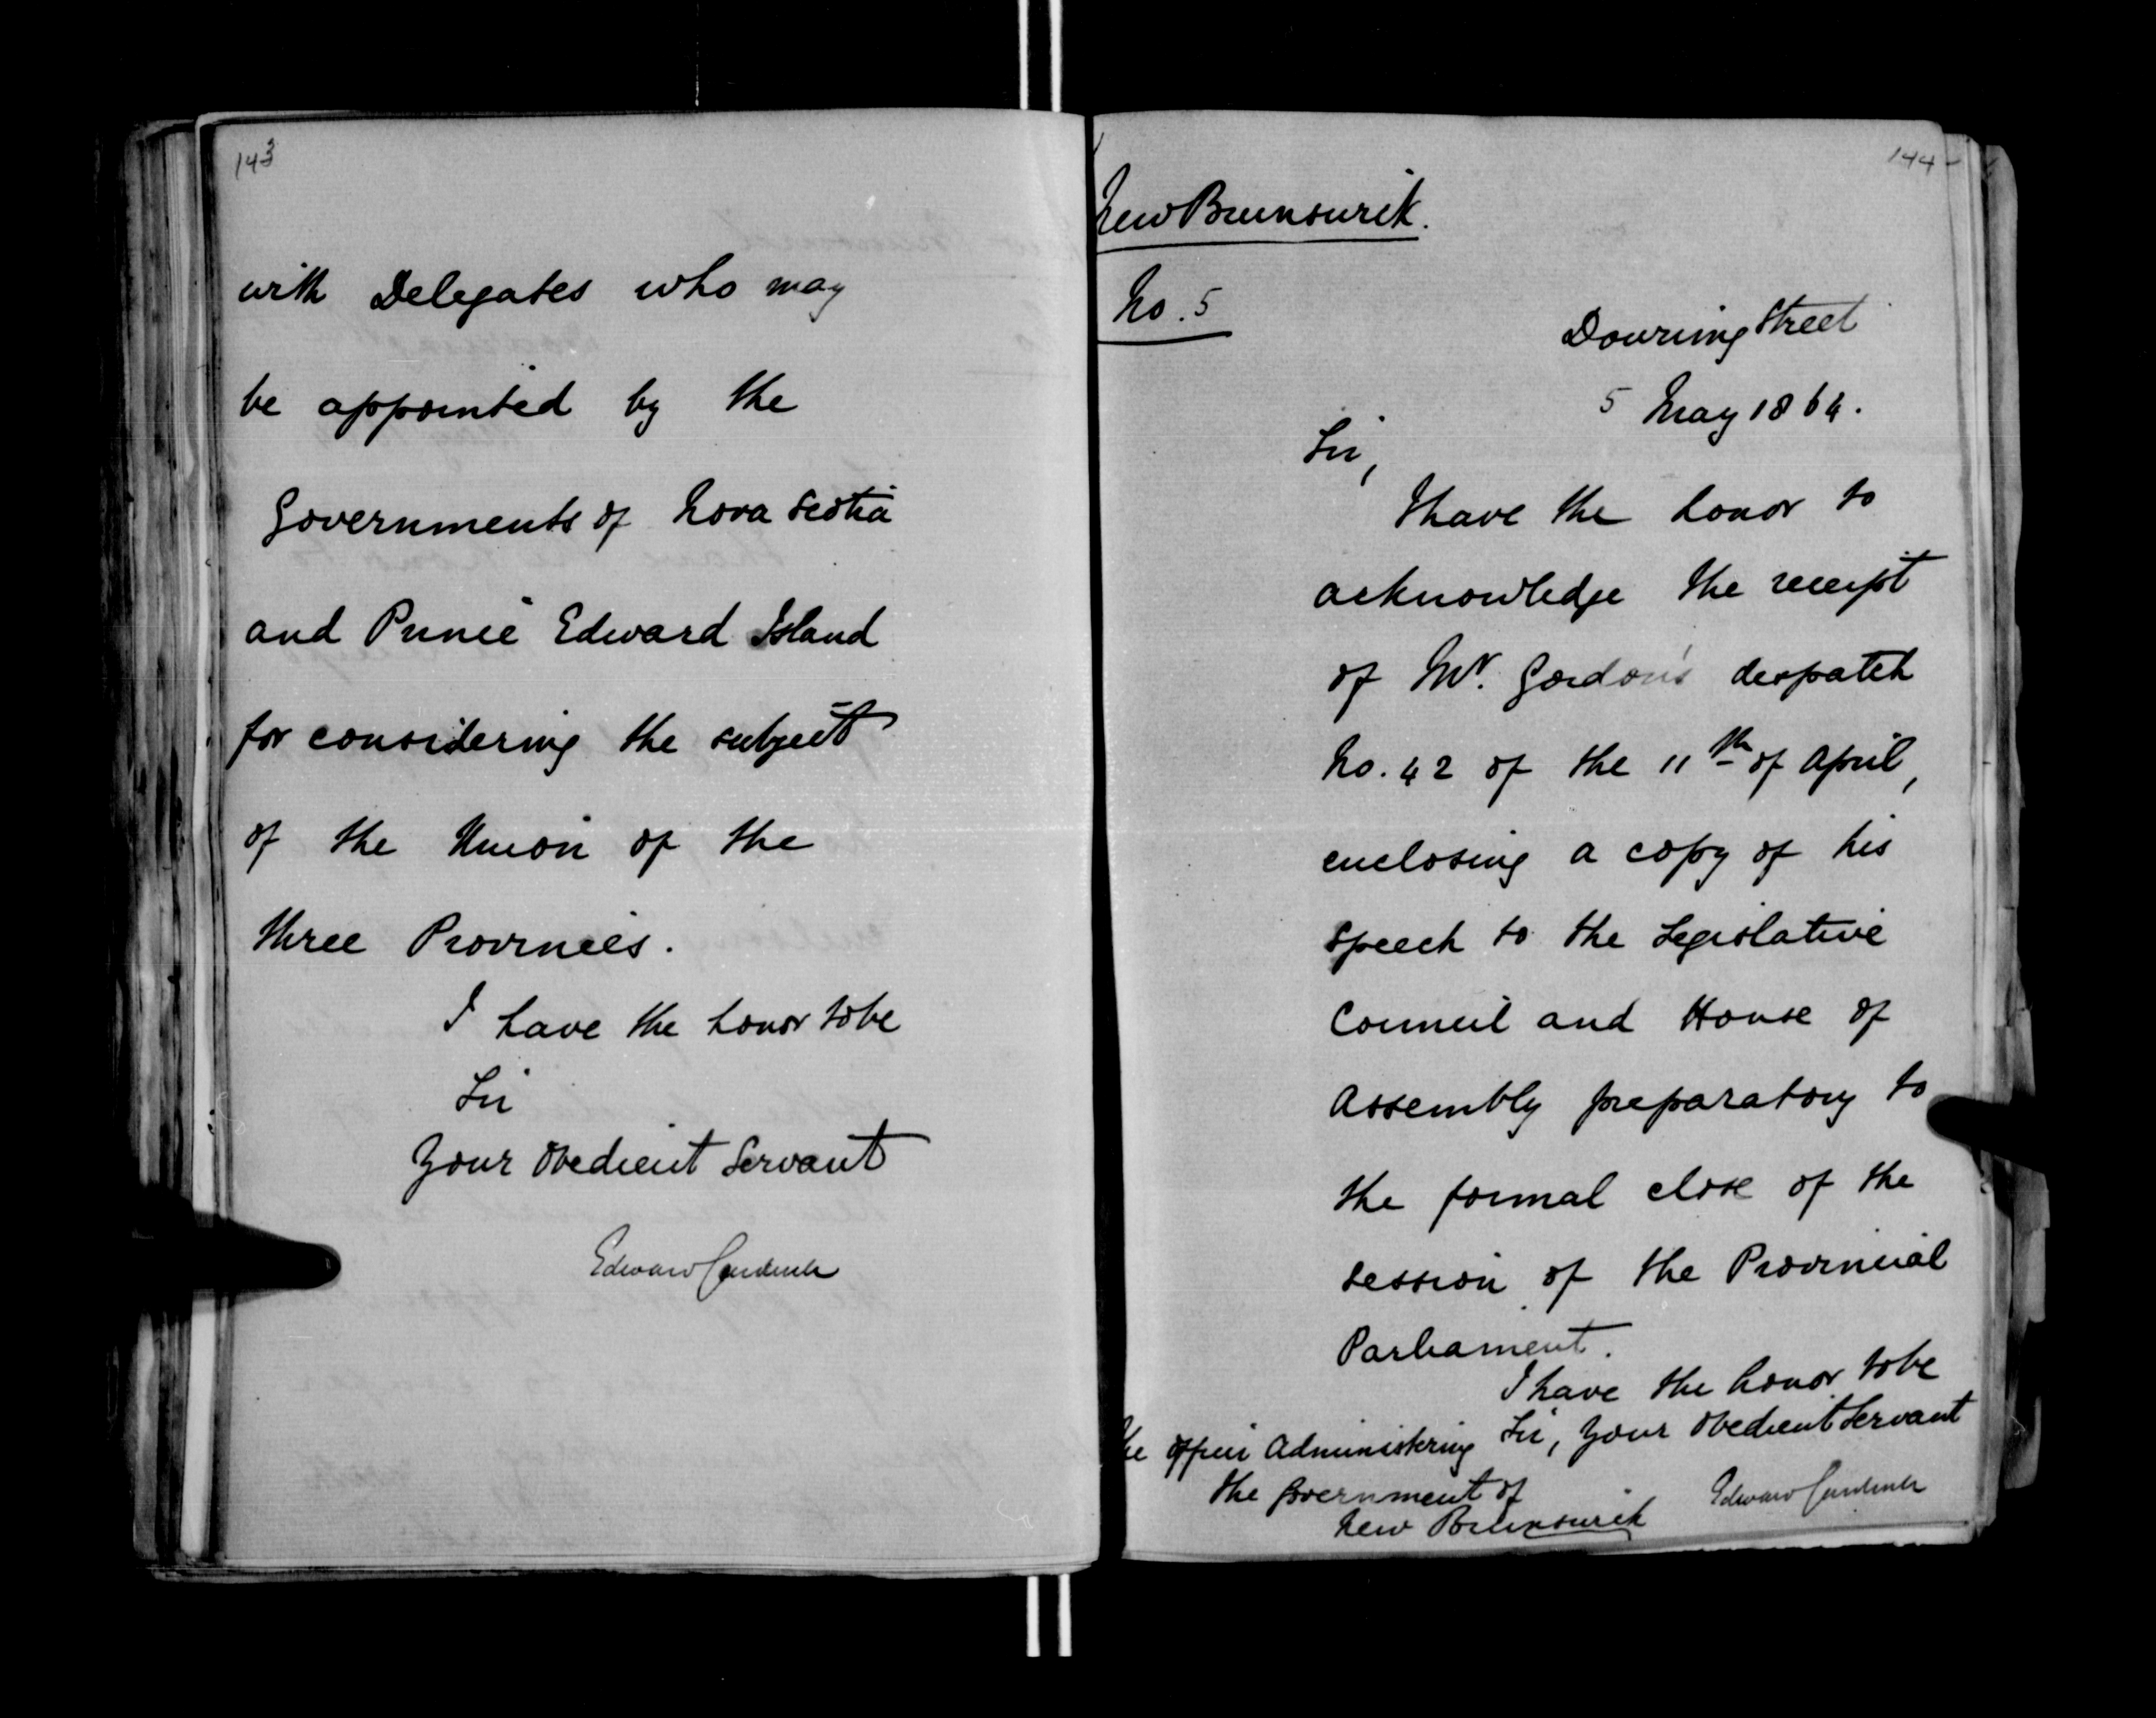 143
with Delegates who may
be appointed by the
Governments of Nova Scotia
and Prince Edward Island
for considering the subject
of the Union of the
three Provinces.
I have the honor to be
Sir
Your Obedient Servant
Edward Cardwell
144
New Brunswick.
No. 5
Downing Street
5 May 1864.
Sir,
I have the honor to
acknowledge the receipt
of Mr. Gordon's despatch
No. 42 of the 11th of April,
enclosing a copy of his
Speech to the Legislative
Council and House of
Assembly preparatory to
the formal close of the
session of the Provincial
Parliament.
I have the honor to be
Sir, Your Obedient Servant
Edward Cardwell
The Officer Administering
the Government of
New Brunswick